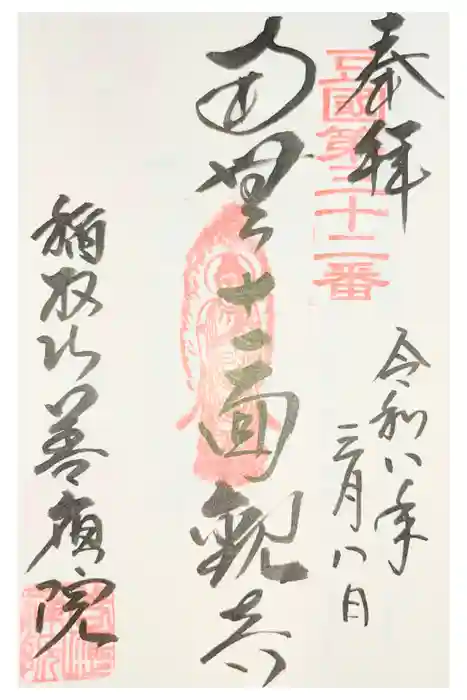 奉拝
豆國第三十二番
令和八年
三月八日
南無十一面観音
稲取山善應院